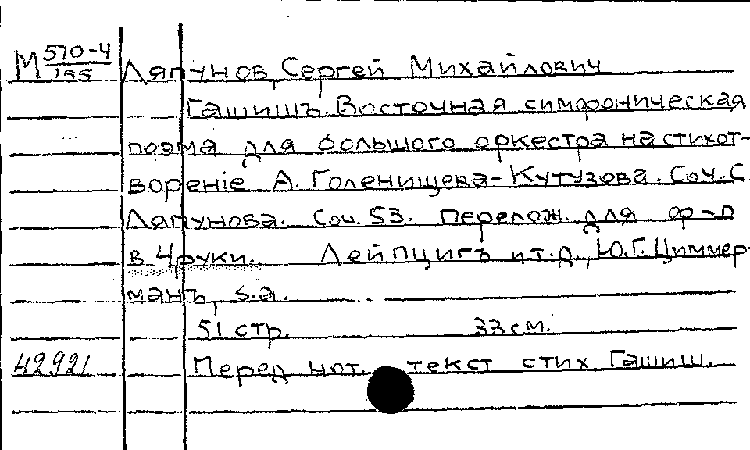 М 570-4/155 Ляпунов, Сергей Михайлович
Гашишъ. Восточная симфоническая
поэма для большого оркестра на стихот-
вореніе А. Голенищева-Кутузова. Соч. С.
Ляпунова. Соч. 53. Перелож. для ф-п
в 4 руки. Лейпцигъ и т.д., Ю.Г. Циммер-
манъ, s.a.
51 стр. 33 см.
42921 Перед нот. текст стих. Гашиш.